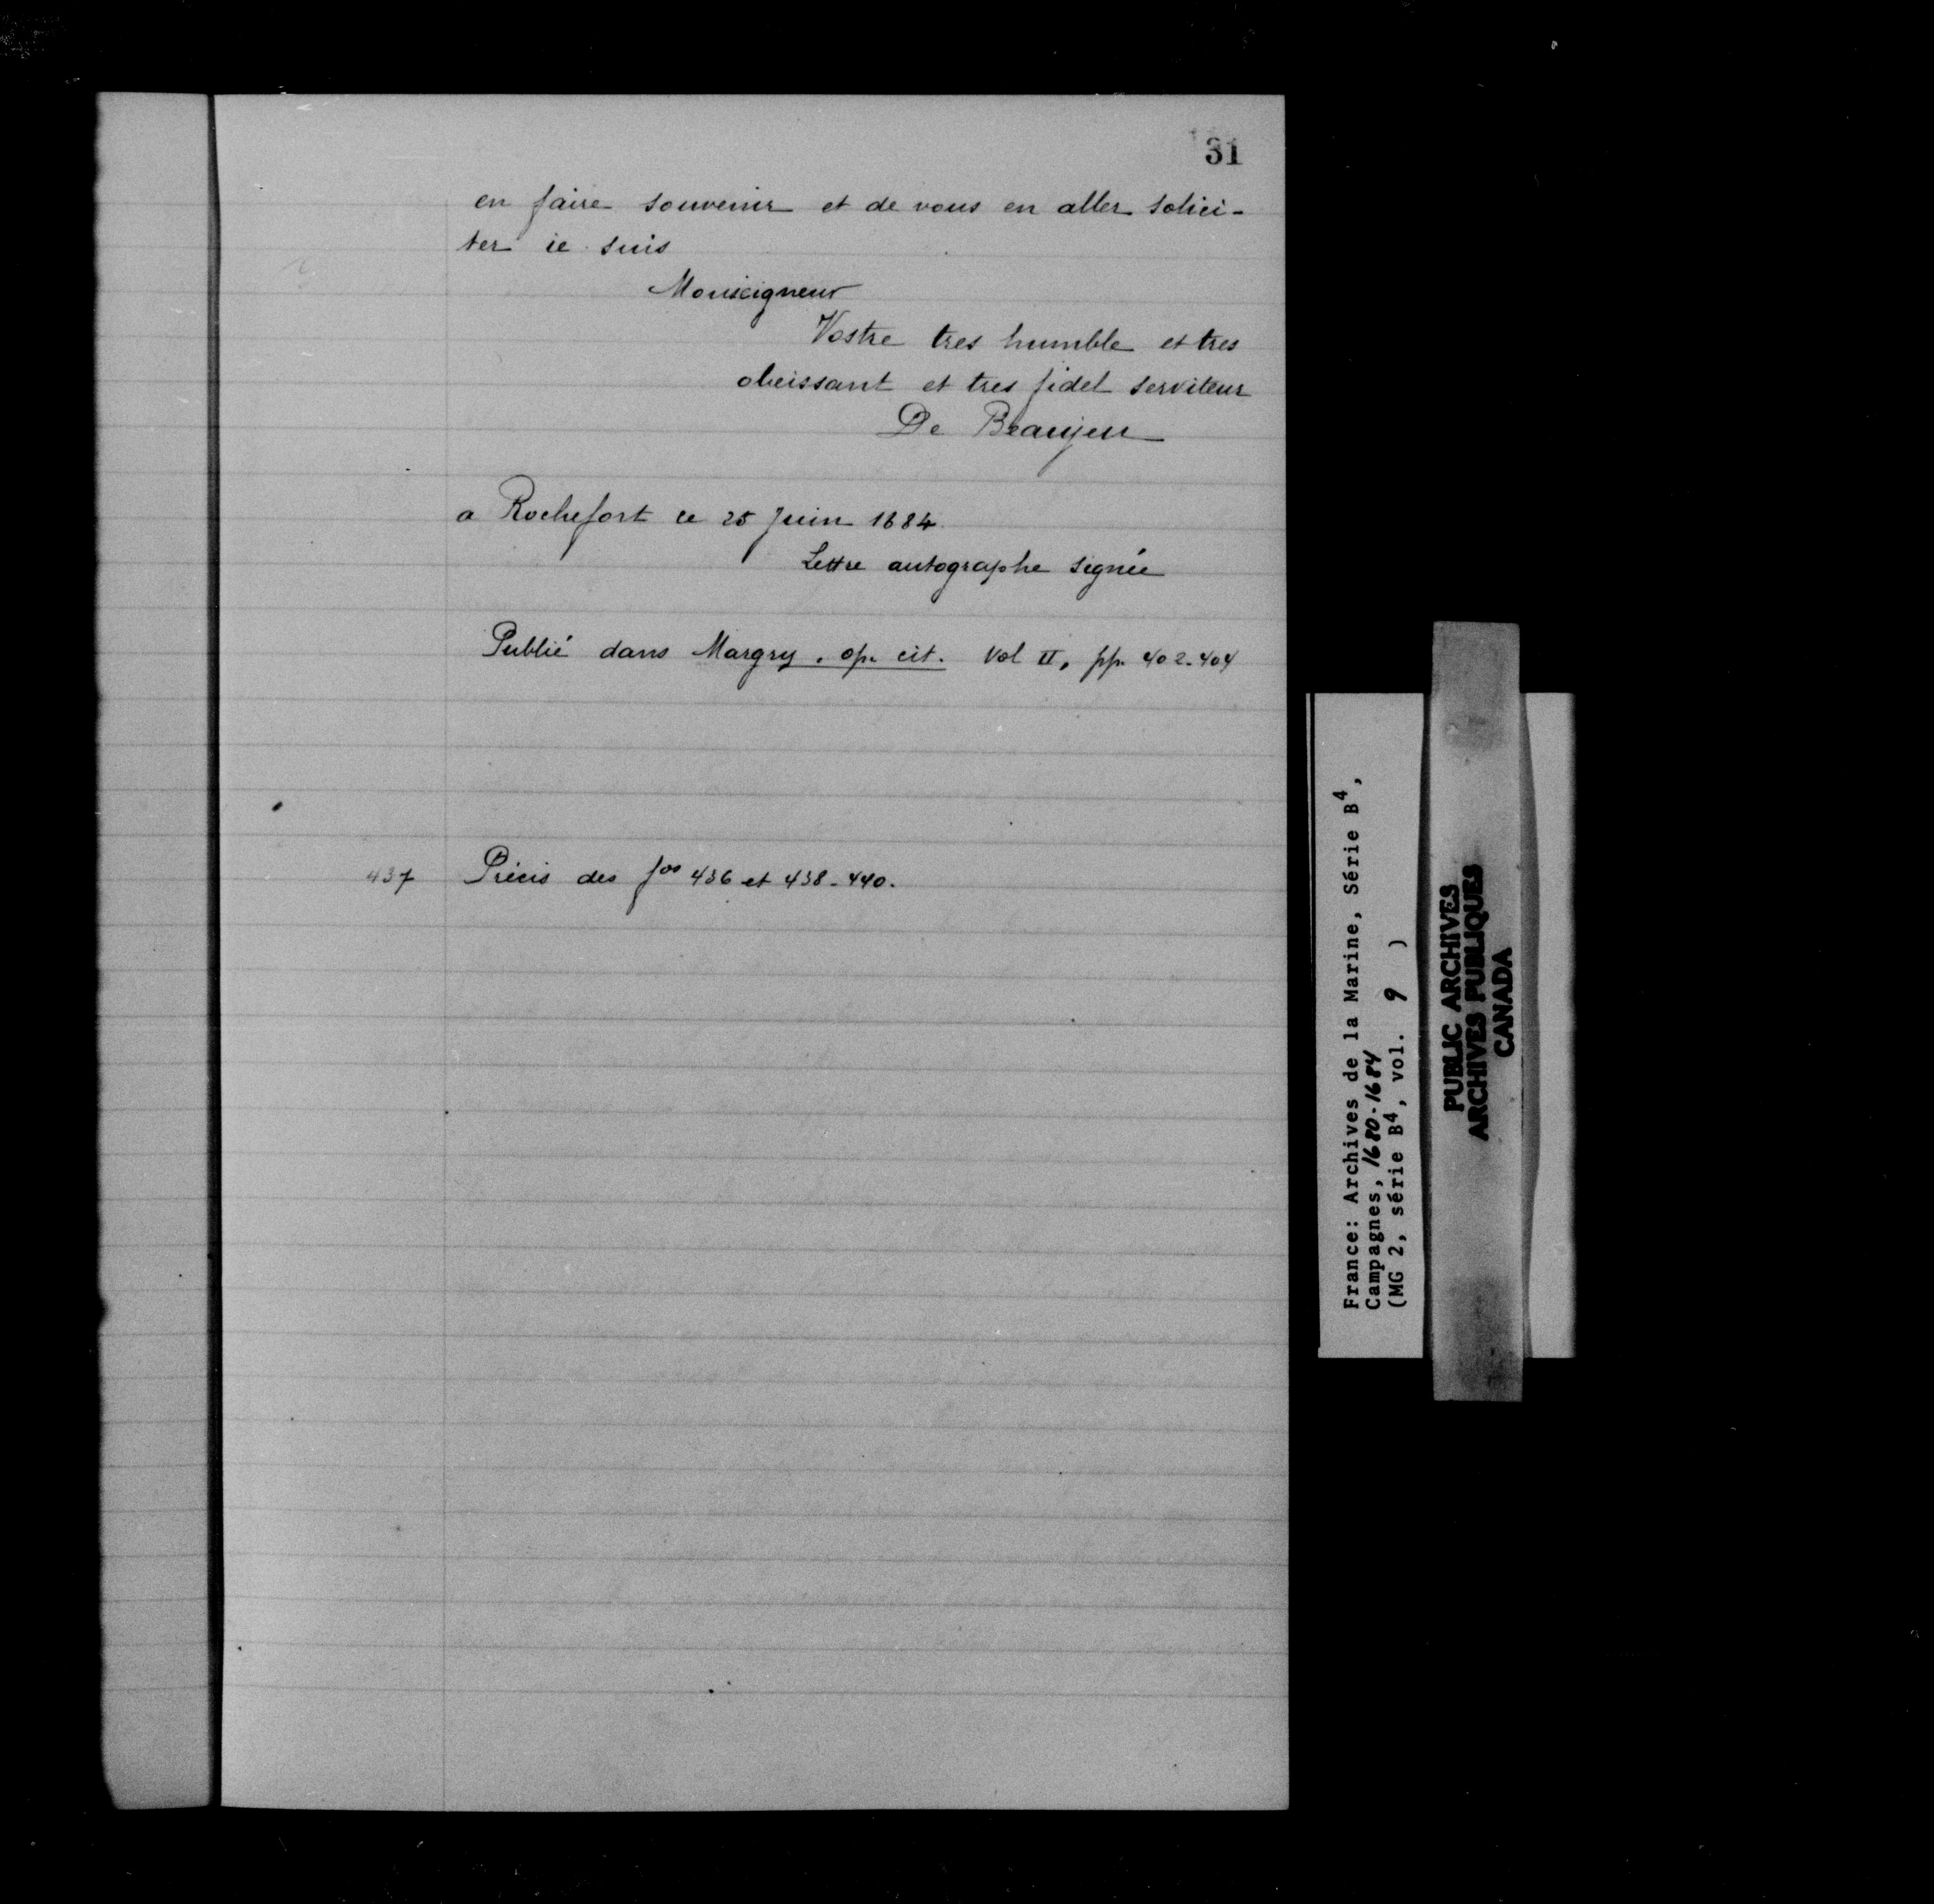 31
en faire souvenir et de vous en aller solici-
ter ie suis
Monseigneur
Vostre tres humble et tres
obeissant et tres fidel serviteur
De Beaujeu
a Rochefort ce 25 Juin 1684
Lettre autographe signée
Publié dans Margry, op. cit. Vol II, pp. 402-404
437 Précis des fos 436 et 438-440.
France: Archives de la Marine, Série B4,
Campagnes, 1680-1684
(MG 2, série B4, vol. 9 )
PUBLIC ARCHIVES
ARCHIVES PUBLIQUES
CANADA